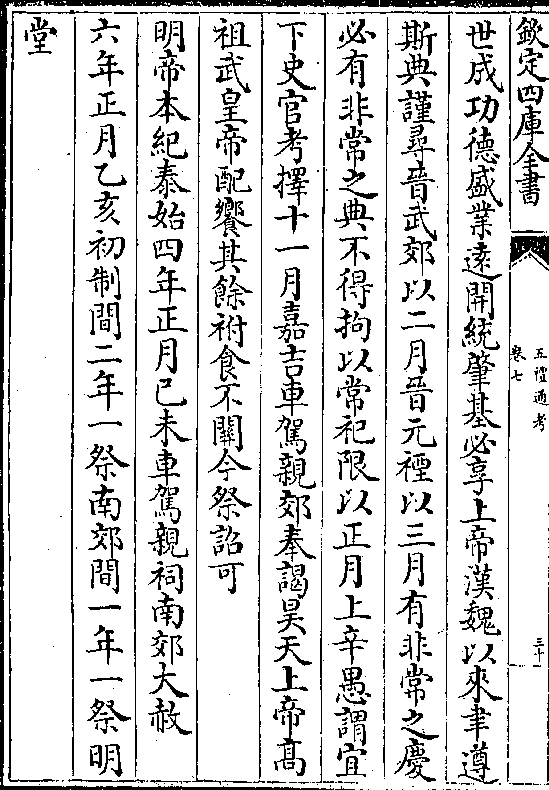 欽定四庫全書
五禮通考
卷七
三十
世成功德盛業遠開統肇基必享上帝漢魏以來聿遵
斯典謹尋晉武郊以二月晉元禋以三月有非常之慶
必有非常之典不得拘以常祀限以正月上辛愚謂宜
下史官考擇十一月嘉吉車駕親郊奉謁昊天上帝髙
祖武皇帝配饗其餘祔食不關今祭詔可
明帝本紀泰始四年正月己未車駕親祠南郊大赦
六年正月乙亥初制間二年一祭南郊間一年一祭明
堂